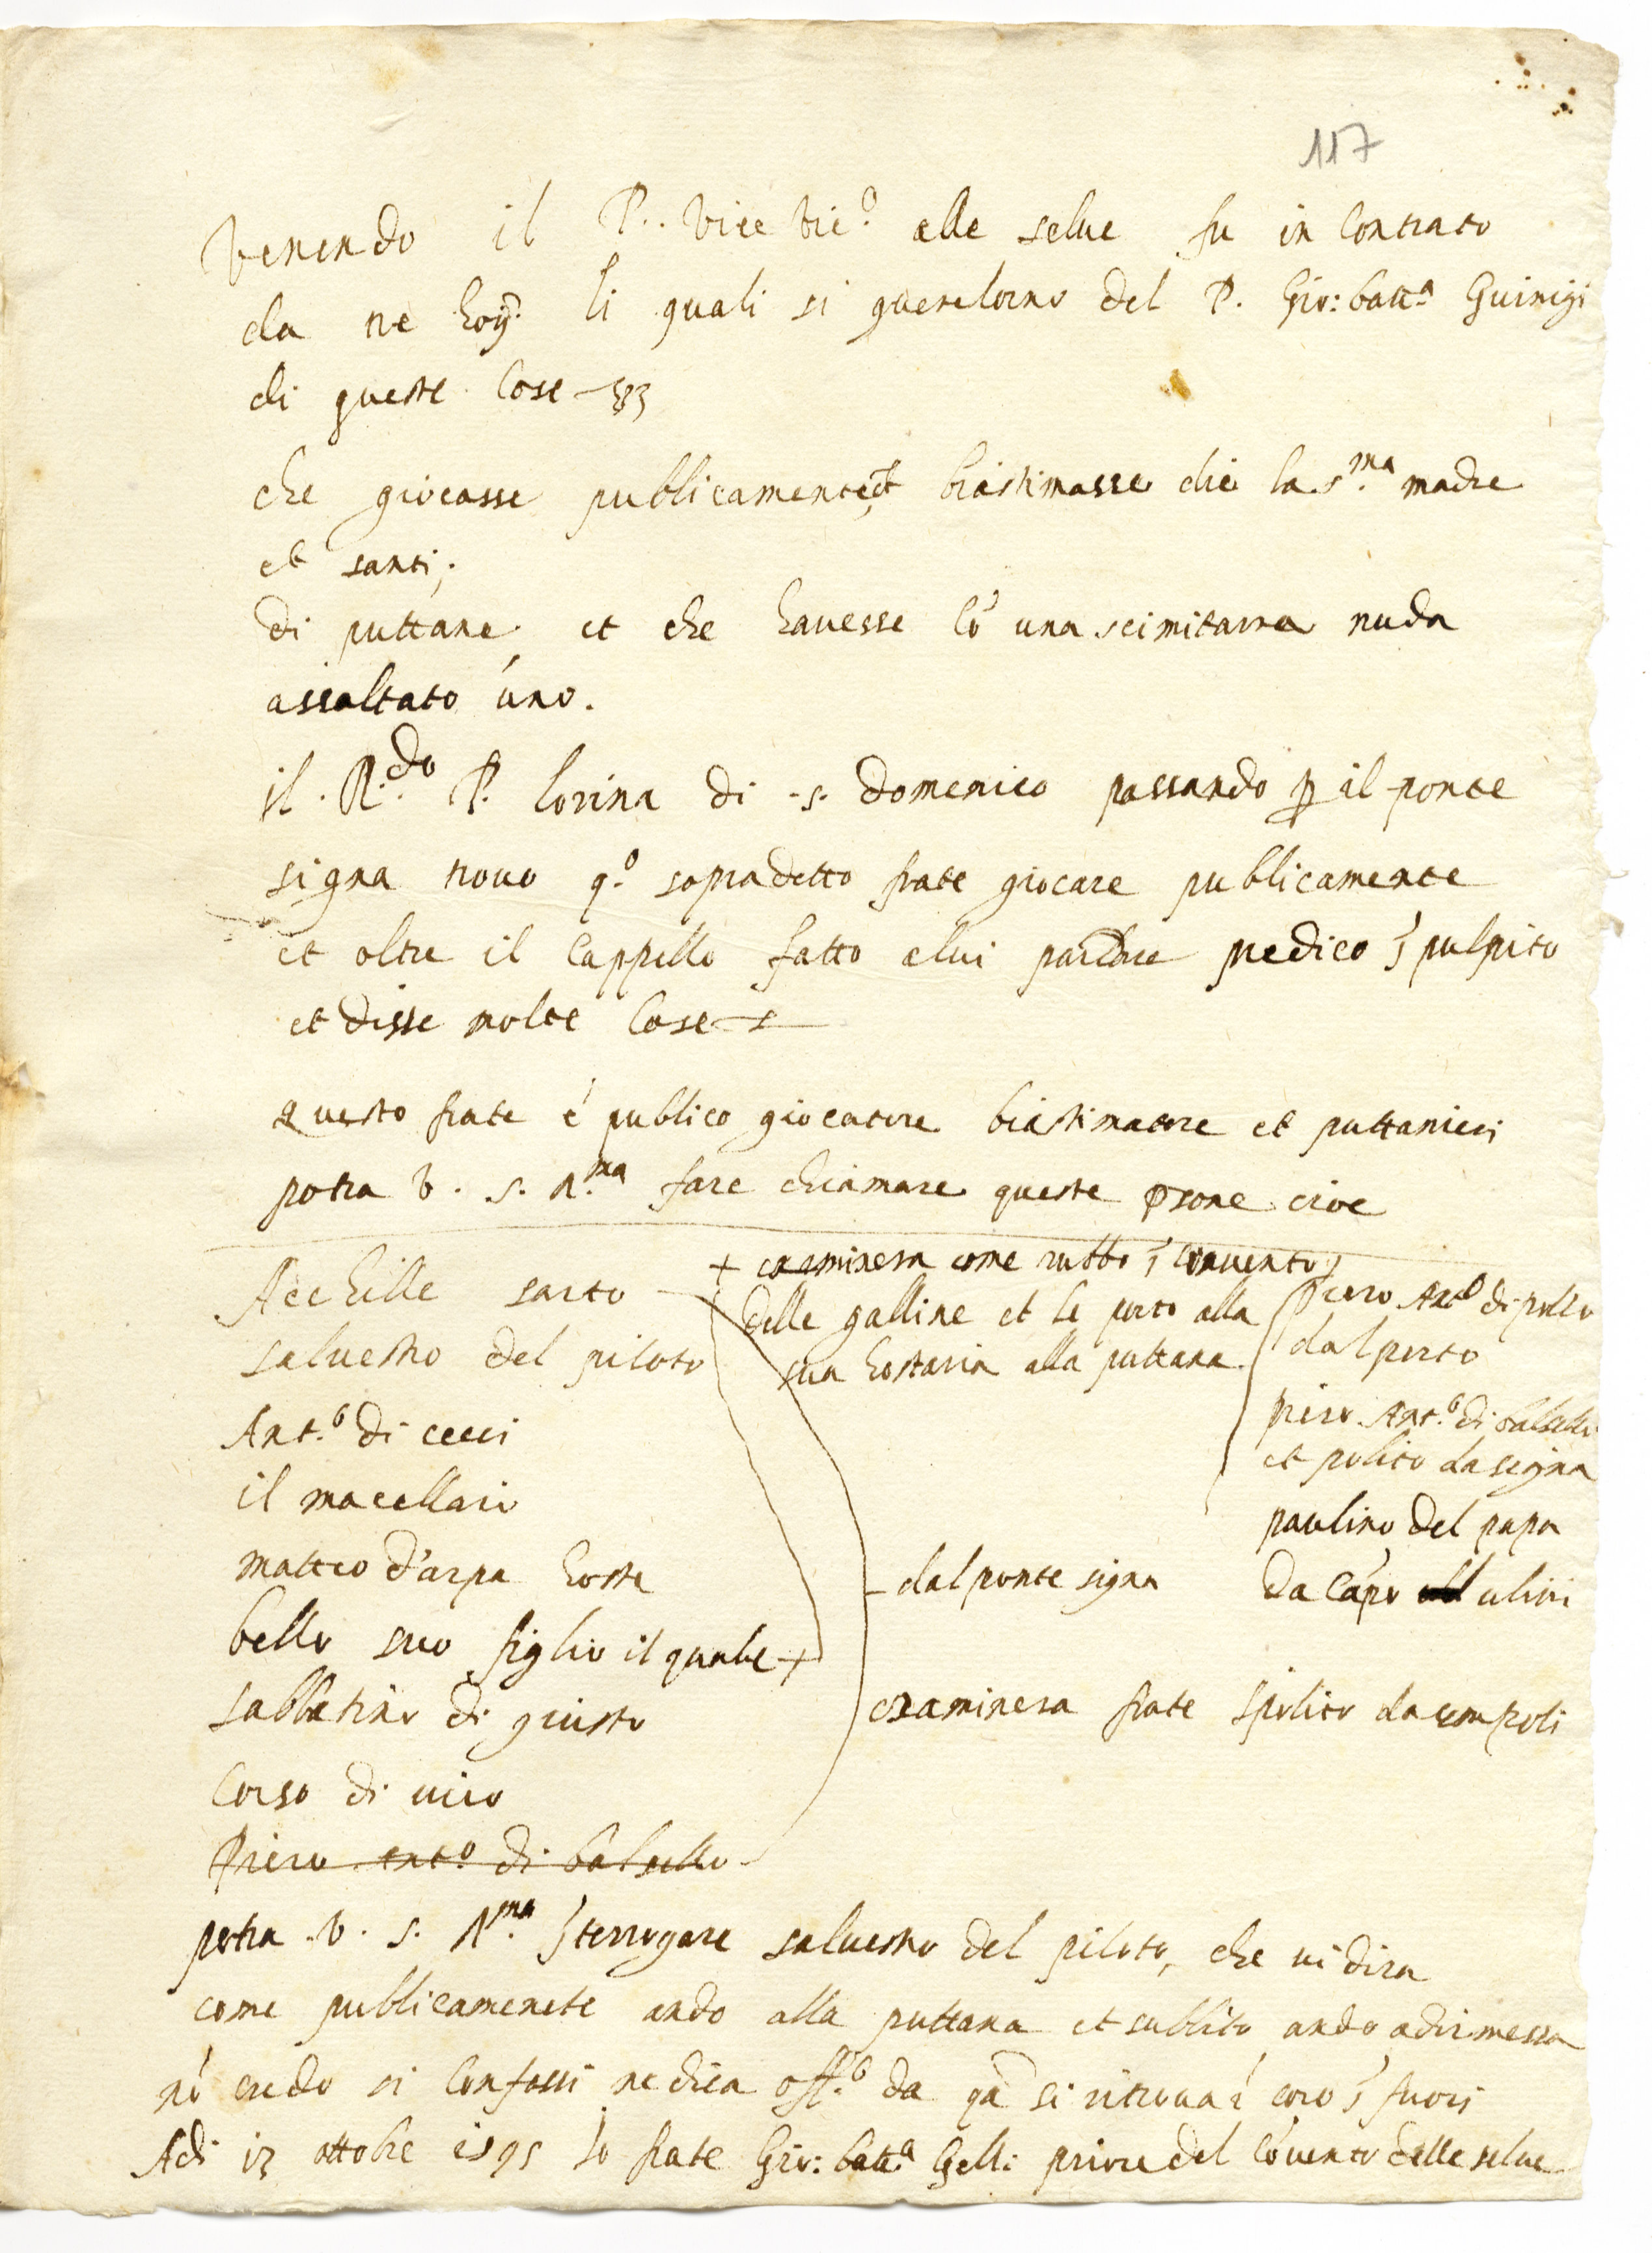 117
Venendo il P. Vice Vic.o alle selue fu in Contrato
da tre li quali si querelorno del P. Gio: batt.a Guinigi
di queste Cose
che giocasse publicamente, et biastimasse die la s.ma madre
et santi;
di puttane et che hauesse cō una scimitarra nuda
assaltato uno.
il R.do P. Corina di s. domenico passando p il ponte
signa trouo q.o sopradetto frate giocare publicamente
et oltre il Cappello fatto a lui predico ī pulpito
et disse molte Cose
questo frate é publico giocatore biastimatore et puttanieri
potra v. s. R.ma fare chiamare queste psone cioe
Acchille sarto
saluestro del piloto
Ant.o di cecci
il macellaro
matteo d'arpa hoste
bello suo figlio il quale +
sabbatino di giusto
Corso di
Piero ant.o di balsello
+ examinera come rubbo ī conuento
delle galline et le porto alla
sua hostaria alla puttana
dal ponte signa
Piero Ant.o di polo
dal porto
piero Ant.o di balsello
et polito da signa
paulino del papa
da Capo uliui
examinera frate ipolito da empoli
potra v. s. R.ma īterrogare saluestro del piloto, che ui dira
come publicamenete ando alla puttana et subbito ando a dir messa
nō credo si Confessi ne dica off.o da qā si ritroua ī coro ī fuori
Adi 13 ottobre 1595 Io frate Gio: batt.a Gelli priore del Cōuento delle selue